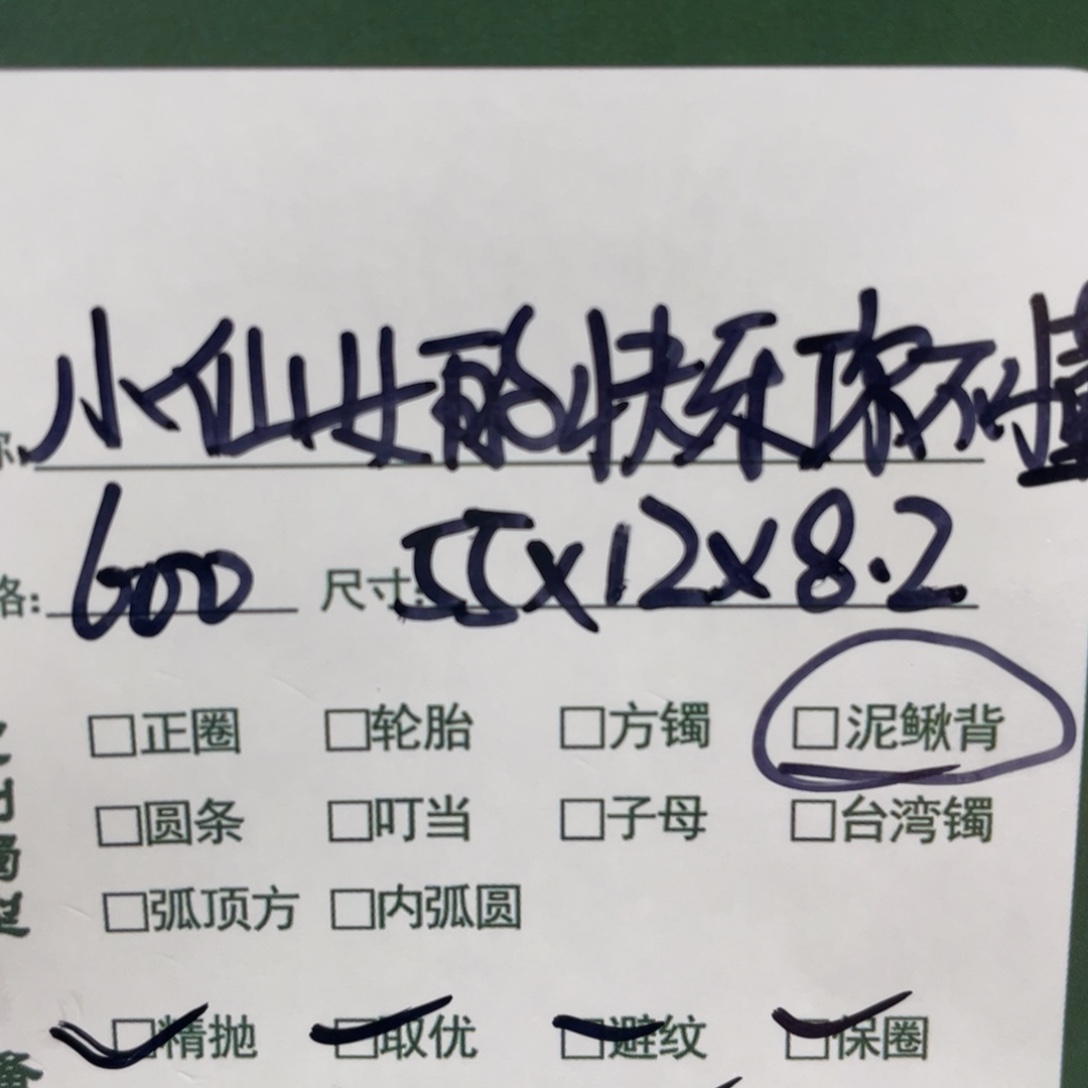 小仙女的快乐你不懂
格: 600 尺寸: 55×12×8.2
□正圈 □轮胎 □方镯 □泥鳅背
□圆条 □叮当 □子母 □台湾镯
□弧顶方 □内弧圆
□精抛 □取优 □避纹 □保圈